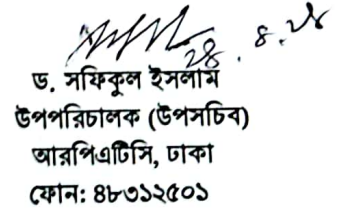 ২৪.৪.২৪
ড. সফিকুল ইসলাম
উপপরিচালক (উপসচিব)
আরপিএটিসি, ঢাকা
ফোন: ৪৮৩১২৫০১